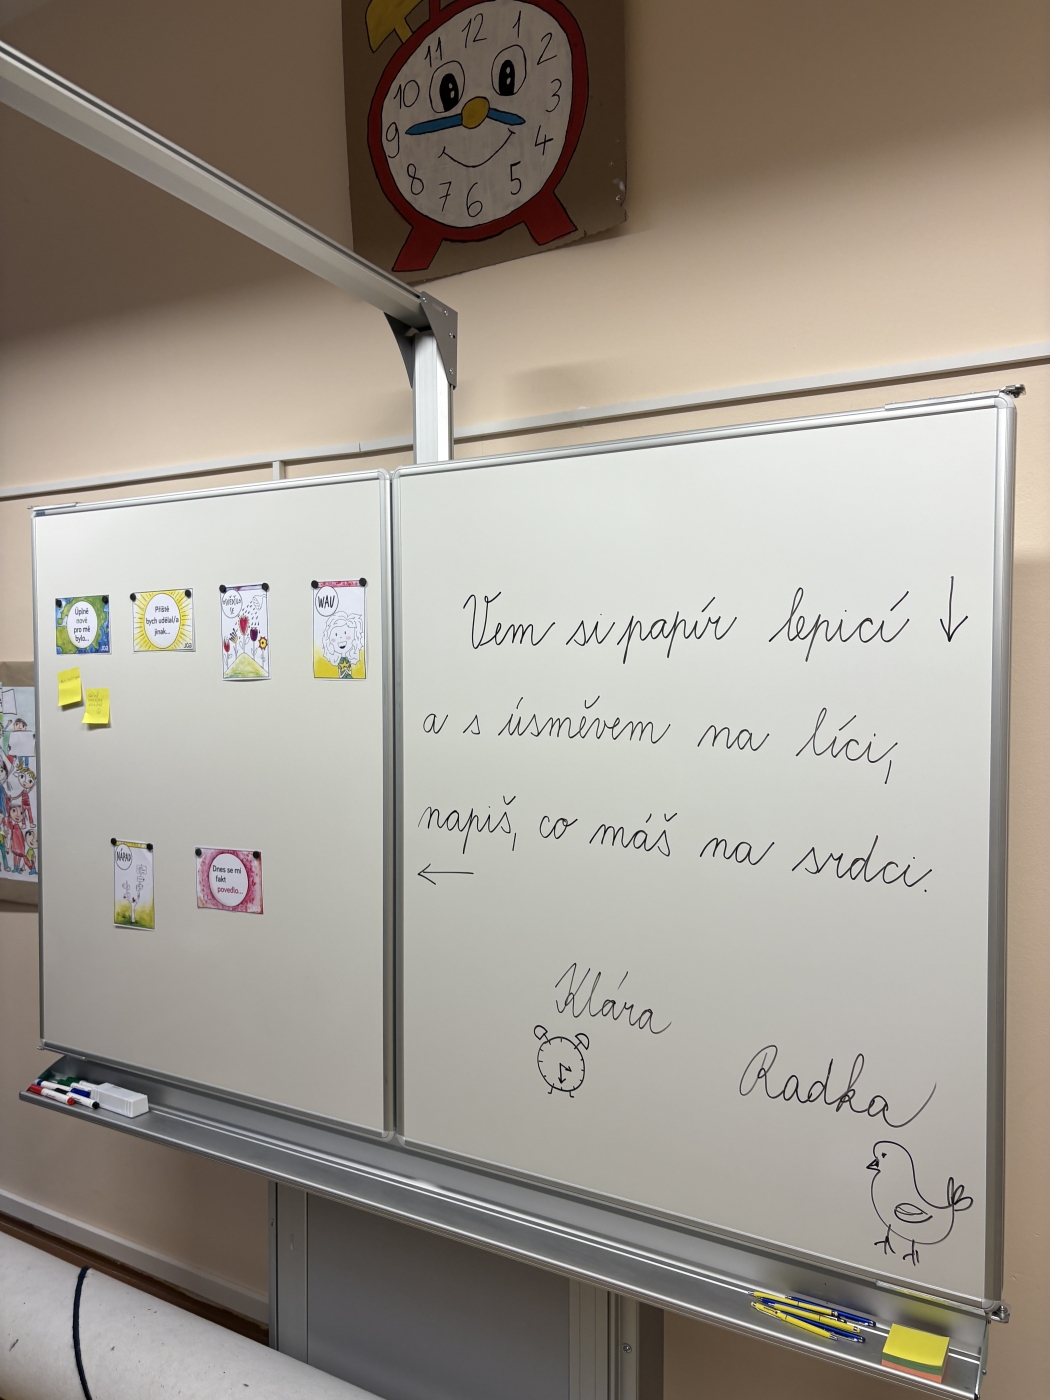 12
1
2
3
4
5
6
7
8
9
10
11
Úplně
nové
pro mě
bylo...
Příště
bych udělal/a
jinak...
JOB
WAU
NÁPAD
Dnes se mi
fakt
povedlo...
Vem si papír lepicí ↓
a s úsměvem na líci,
napiš, co máš na srdci.
←
Klára
Radka